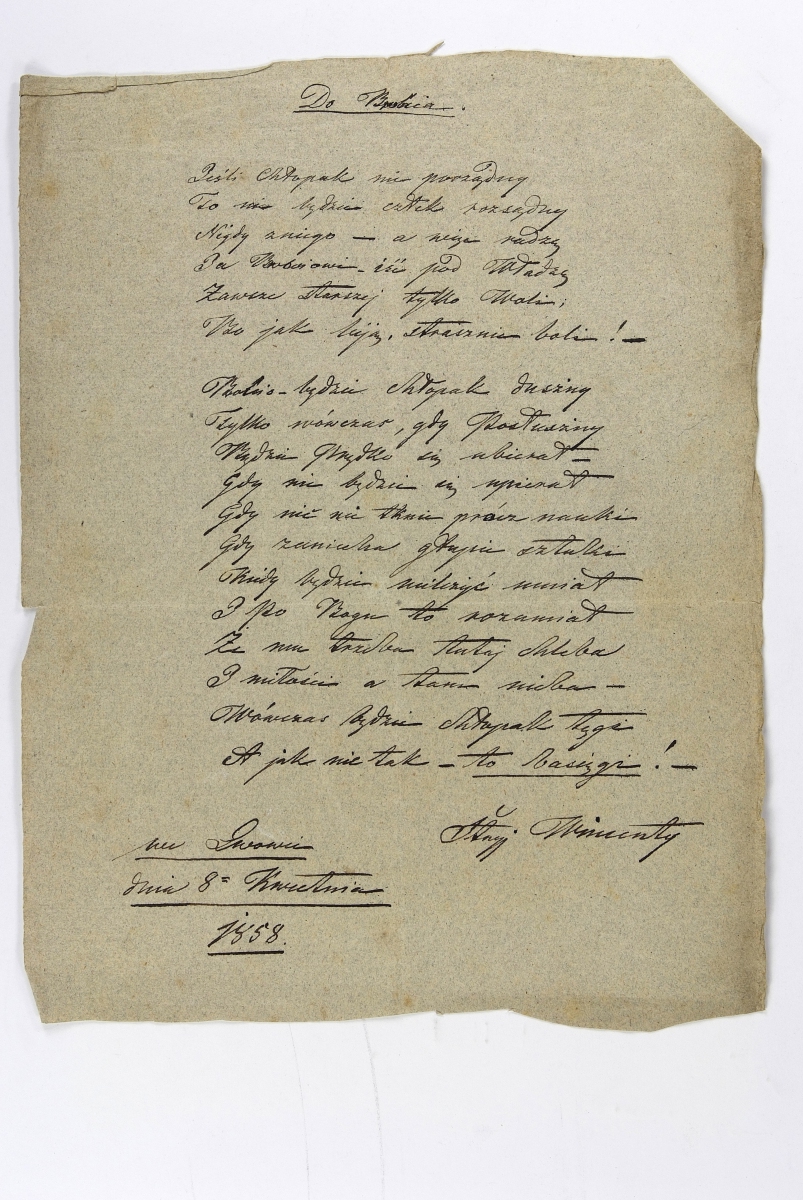 Do Bobcia.
Jeśli Chłopak nie porządny
To nie będzie człek rozsądny
Nigdy zniego — a więc radzę
Ja Bobciowi - iść pod Władzę
Zawsze starszej tylko Woli;
Bo jak biją, strasznie boli! —
Bobcio - będzie Chłopak duszny
Tylko wówczas, gdy Posłuszny
Będzie Prędko się ubierał —
Gdy nie będzie się upierał
Gdy nic nie tknie prócz nauki
Gdy zaniecha głupie sztuki
Kiedy będzie milczyć musiał
I Po Bogu to rozumiał
Że mu trzeba tutaj Chleba
I miłości a tam nieba —
Wówczas będzie Chłopak tęgi
A jak nie tak — to basięgi! —
Stryj Wincenty
we Lwowie
dnia 8º Kwietnia
1858.